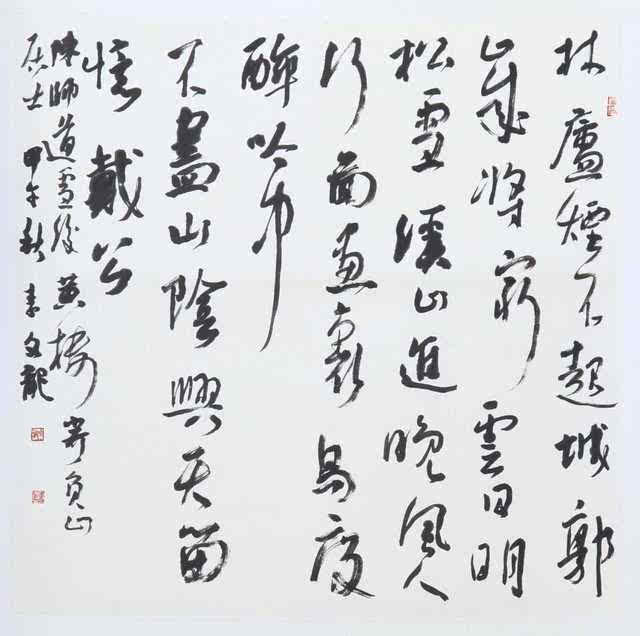 林廬煙不起城郭
歲將窮雲日明
松雪溪山進晚風人
行圖畫裏鳥度
醉吟中
不盡山陰興天留
憶戴公
陳師道雪後黃樓寄負山
居士 甲午秋 李文龍